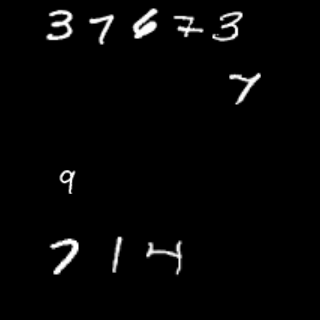 37673
7
9
714